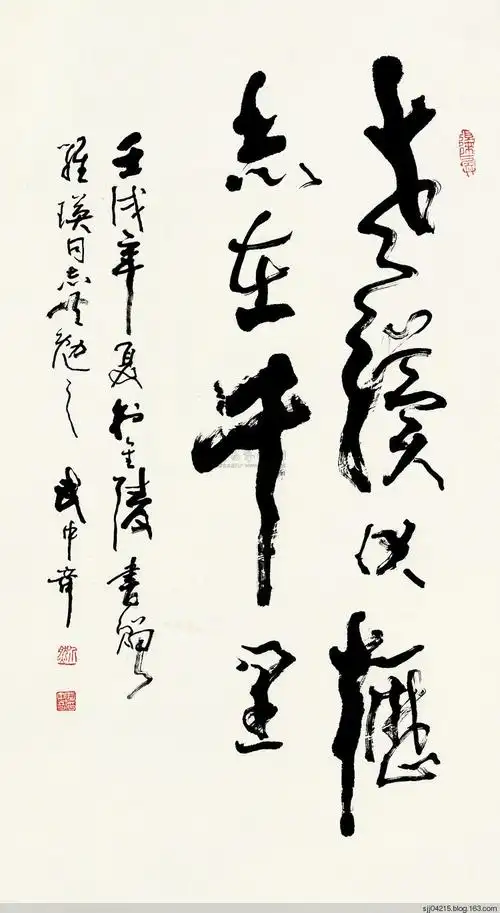 老驥伏櫪
志在千里
壬戌年夏於金陵書贈
羅瑛同志共勉之 武中奇
sjj04215.blog.163.com